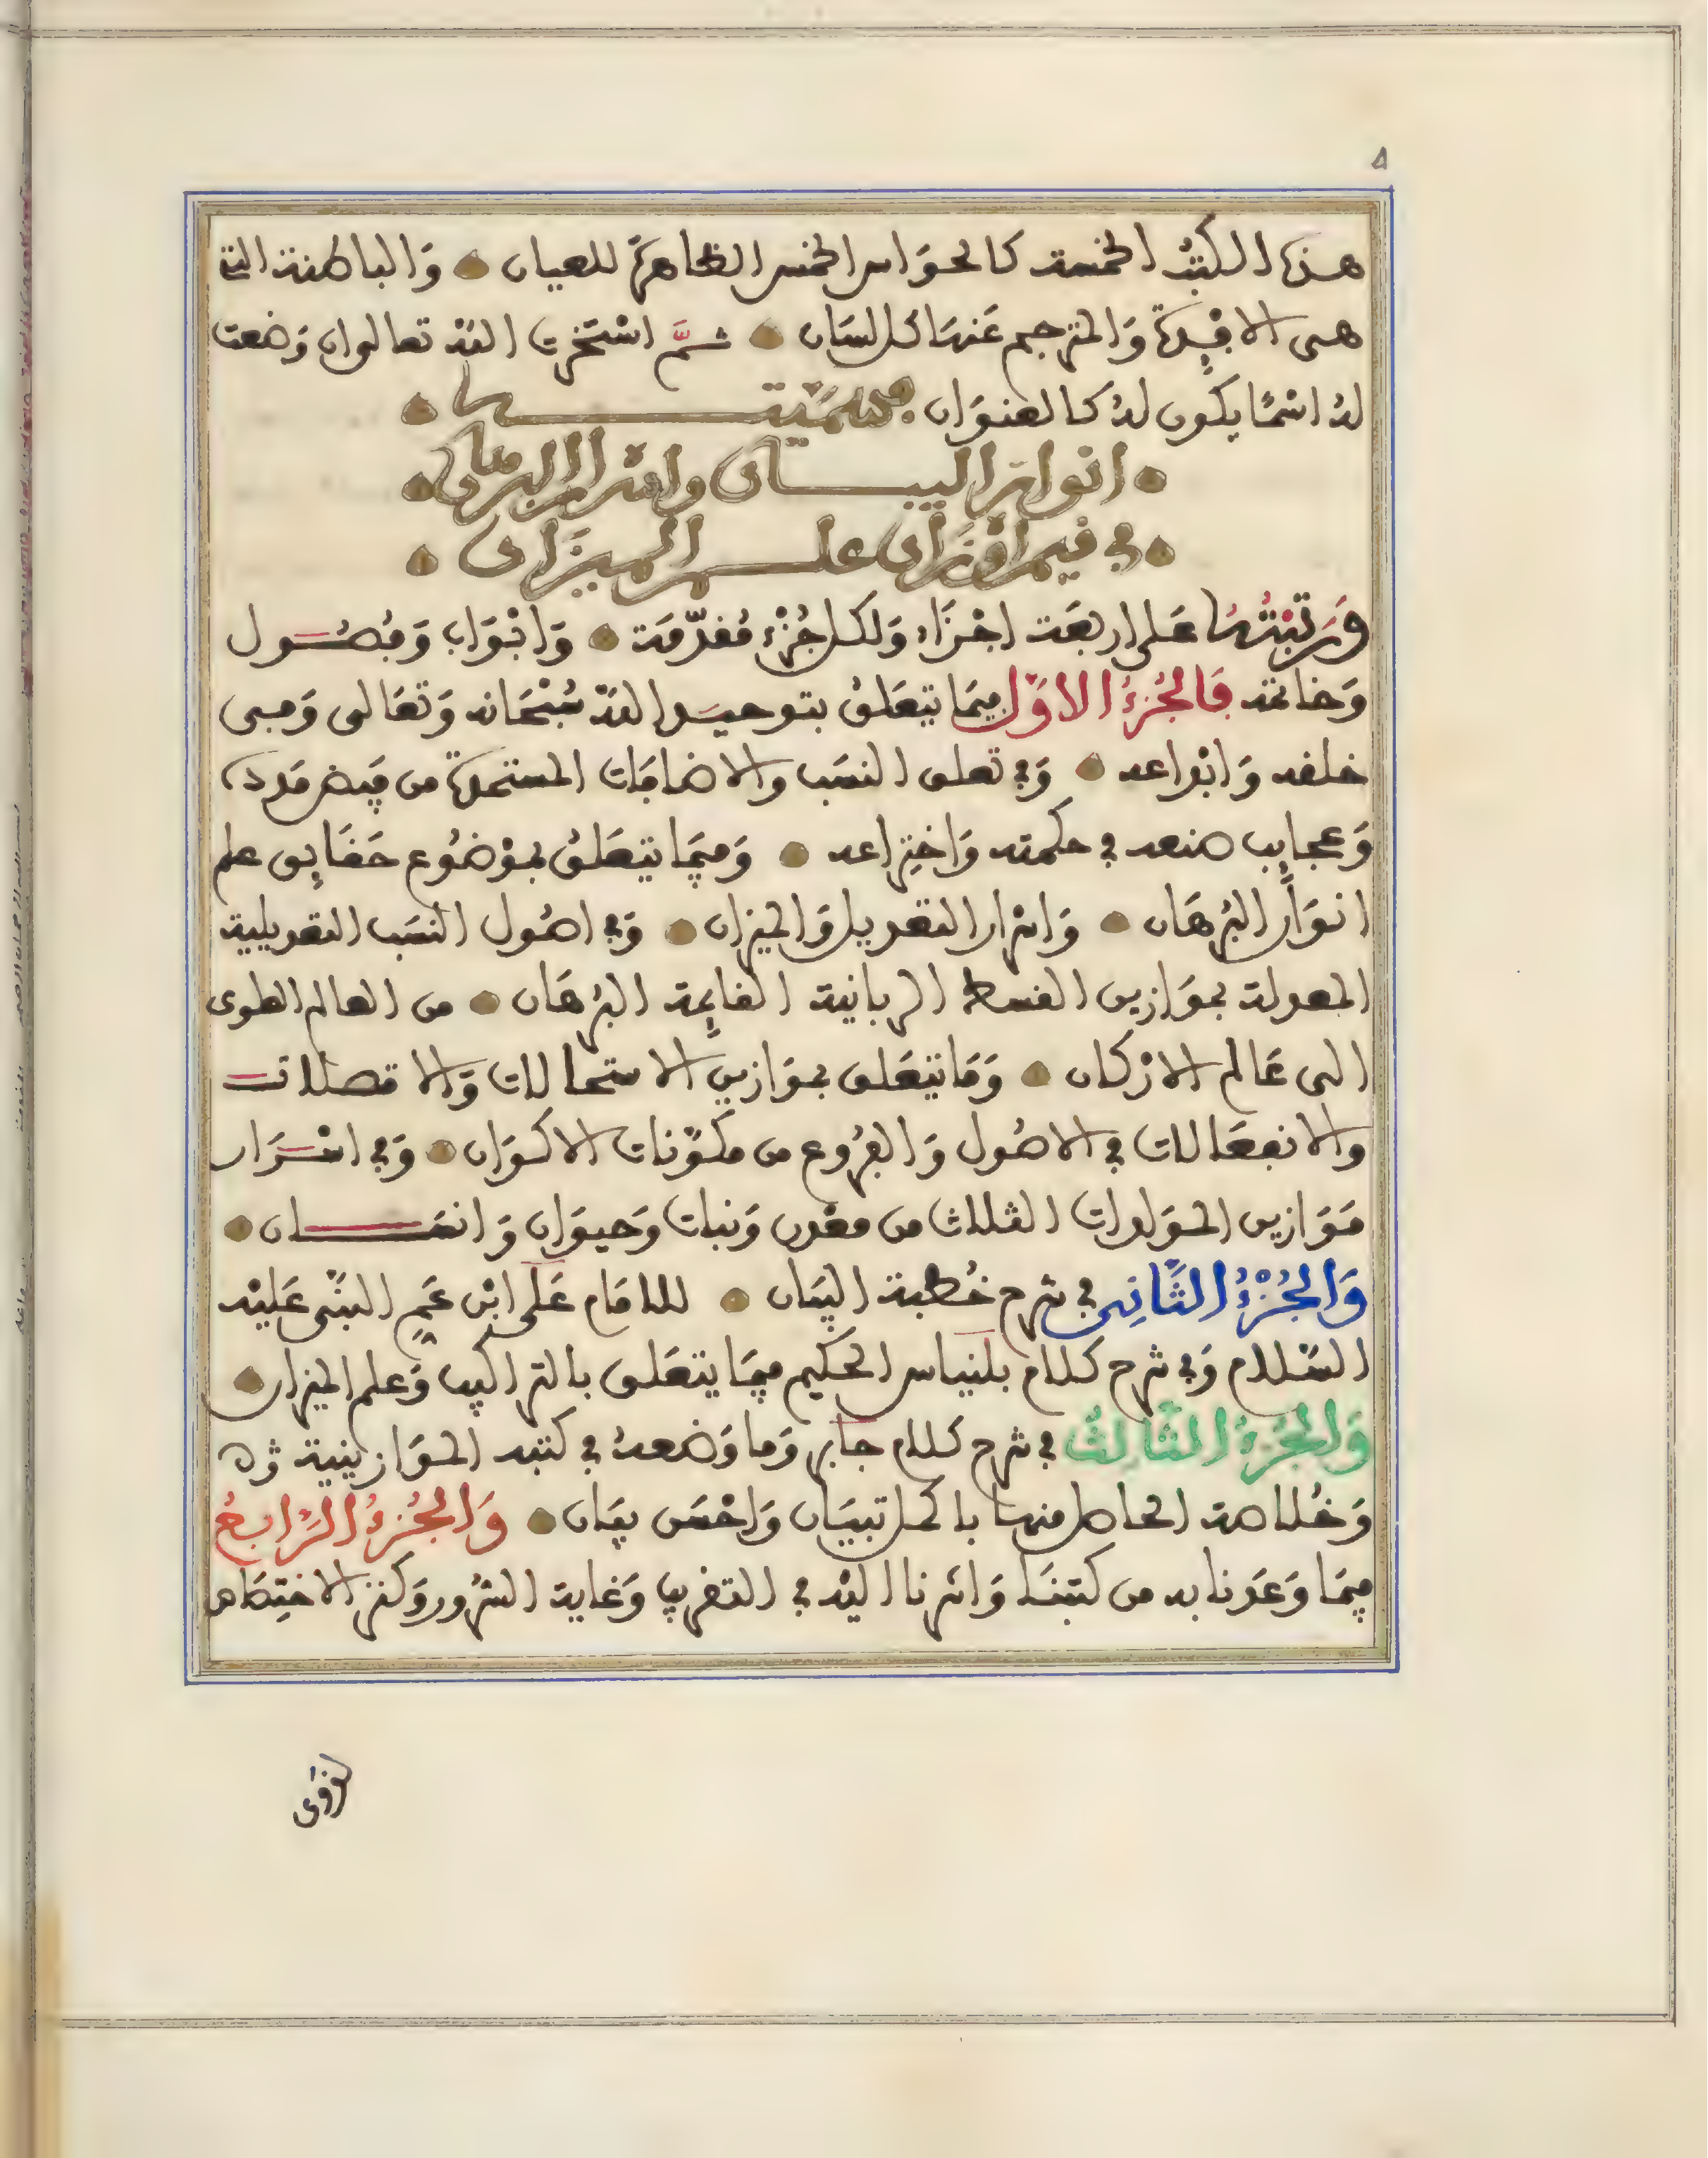 ٥
هذه الكتب الخمسة كالحوَاس الخمس الظاهرَة للعيان وَالباطنة التي
هى الافِدة وَالمترجم عَنها كل لسَان ثمَّ اسْتخرت اللهْ تعالى وان وَضعت
لهُ اسْمًا يكون لهُ كالعنوَان فسَميّتها
انوار البيان واسْرار البرهان
في فهم اوْزان علم الميزَان
وَرَتبْتُهَا عَلى اربعَة اجْزَاء وَلكل جُزْء مُقدّمَة وَابْوَاب وَفُصُول
وَخاتمة فَالجُزءُ الاوَّل فيمَا يتعَلقُ بتوحيد اللهْ سُبْحَانه وَتعَالى وَفى
خلقه وَابْداعه وَفي تعلق النسَب والاضافَات المستمدة من فَيض مَدده
وَعجايِب صنعه في حكمته وَاختِراعه وَفيمَا يتعَلقُ بموْضُوع حَقَايِق علم
انوَار البُرهَان وَاسْرار التعديل وَالميزان وَفي اصُول النسَب التعديلية
المعدلة بموَازين القسط الربانية القايِمة البُرهَان من العالم العلوى
الى عَالم الارْكان وَمَا يتعَلق بموَازين الاستحالات وَالاتصلات
والانفعَالات في الاصُول وَالفرُوع من مكوّنات الاكوَان وَفي اسْرَار
مَوَازين الموَلدات الثلاث من معْدن وَنبات وَحيوَان وَانسَان
وَالجُزْءُ الثَّانِى في شرح خُطبة البيَان للامَام عَلى ابْن عَمِ النبّى عَليْه
السّلام وَفي شرح كلام بلنياس الحكيم فيمَا يتعَلق بالتراكيب وَعلم الميزان
وَالجُزءُ الثَّالثُ في شرح كلام جابر وَما وَضعهُ في كتبه الموَازينية
وَخُلاصة الحاصل منها باكمل تبيَان وَاحْسَن بيَان وَالجُزءُ الرَّابعُ
فيمَا وَعَدنا به من كتبنَا وَاشرنا اليْه في التقريب وَغاية السُّرور وَكنز الاختِصَاص